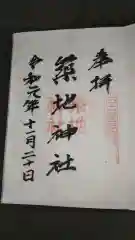 奉拝
築地神社
令和元年十一月二十日